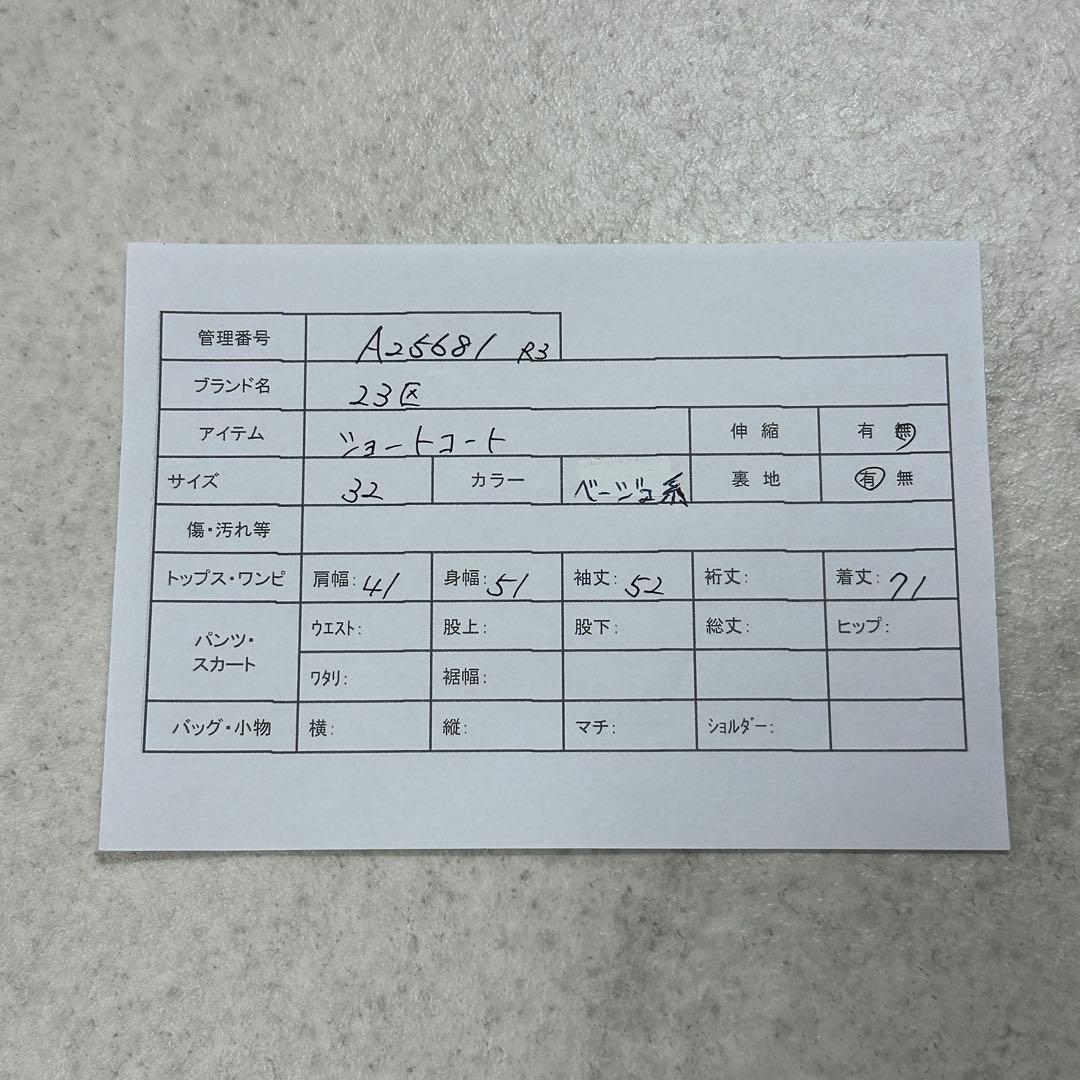 管理番号 A25681 R3
ブランド名 23区
アイテム ショートコート 伸縮 有 無
サイズ 32 カラー ベージュ系 裏地 有 無
傷・汚れ等
トップス・ワンピ 肩幅: 41 身幅: 51 袖丈: 52 裄丈: 着丈: 71
パンツ・スカート ウエスト: 股上: 股下: 総丈: ヒップ:
ワタリ: 裾幅:
バッグ・小物 横: 縦: マチ: ショルダー: